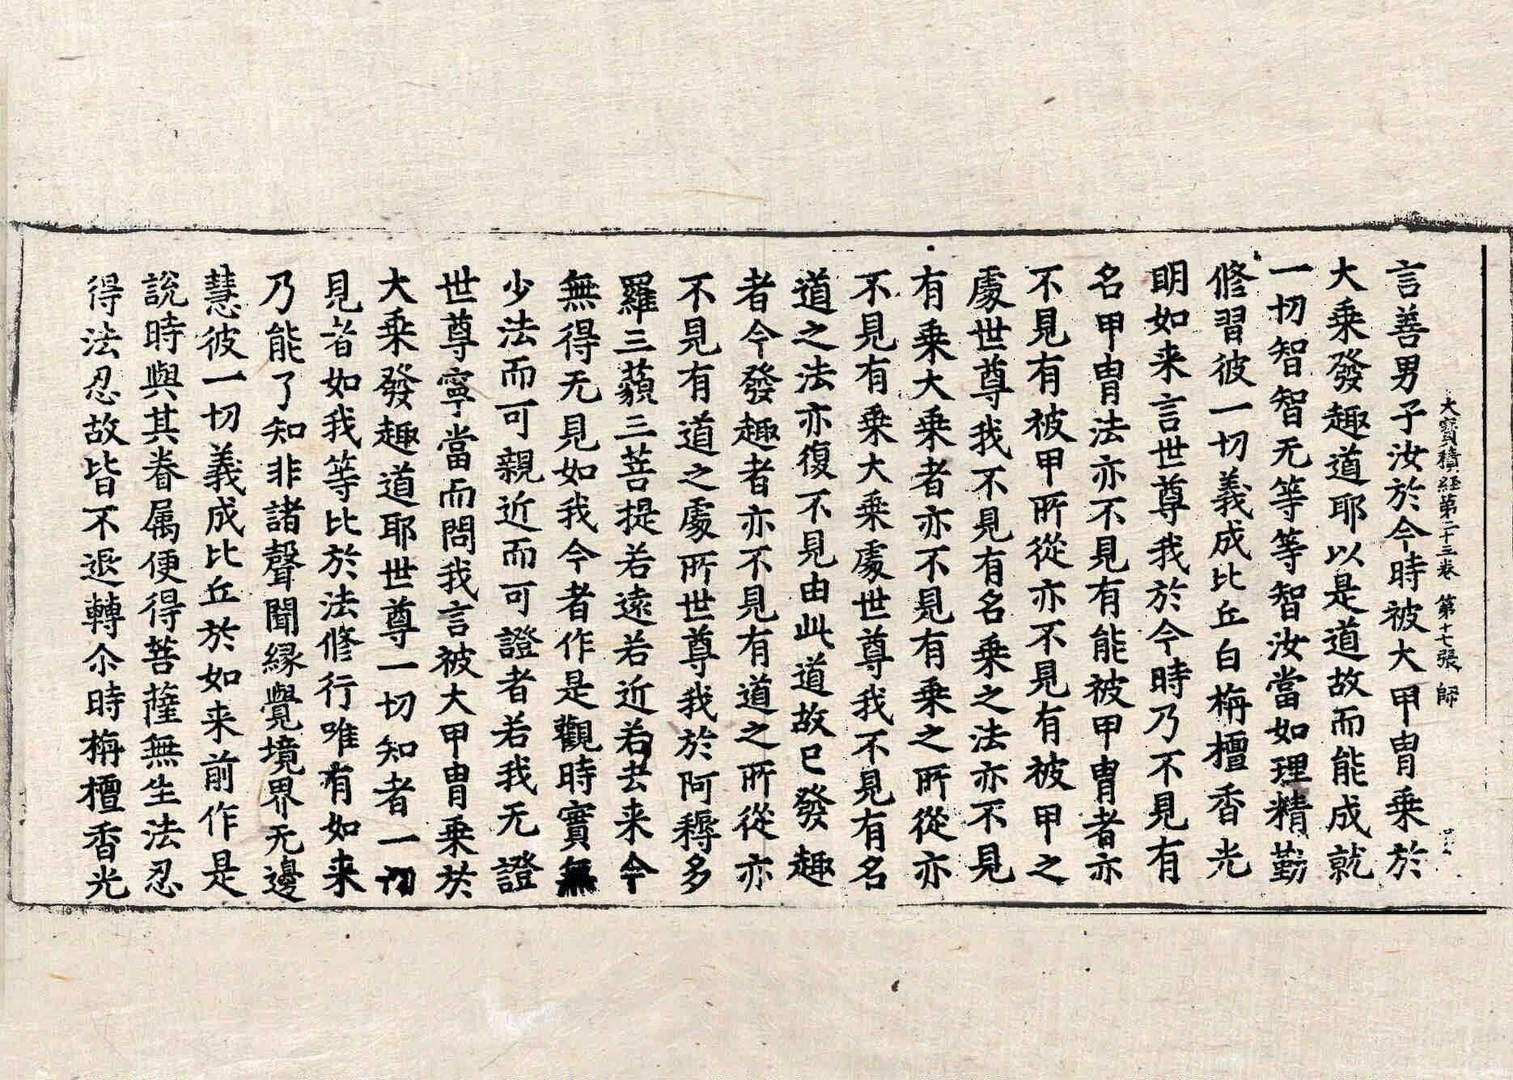 大寶積經第二十三卷 第十七張 師
言善男子汝於今時被大甲胄乗於
大乗發趣道耶以是道故而能成就
一切智智无等等智汝當如理精勤
修習彼一切義成比丘白栴檀香光
明如来言世尊我於今時乃不見有
名甲胄法亦不見有能被甲胄者亦
不見有被甲所從亦不見有被甲之
處世尊我不見有名乗之法亦不見
有乗大乗者亦不見有乗之所從亦
不見有乗大乗處世尊我不見有名
道之法亦復不見由此道故已發趣
者今發趣者亦不見有道之所從亦
不見有道之處所世尊我於阿耨多
羅三藐三菩提若遠若近若去来今
無得无見如我今者作是觀時實無
少法而可親近而可證者若我无證
世尊寧當而問我言被大甲胄乗於
大乗發趣道耶世尊一切知者一切
見者如我等比於法修行唯有如来
乃能了知非諸聲聞縁覺境界无邊
慧彼一切義成比丘於如来前作是
說時與其眷属便得菩薩無生法忍
得法忍故皆不退轉尒時栴檀香光